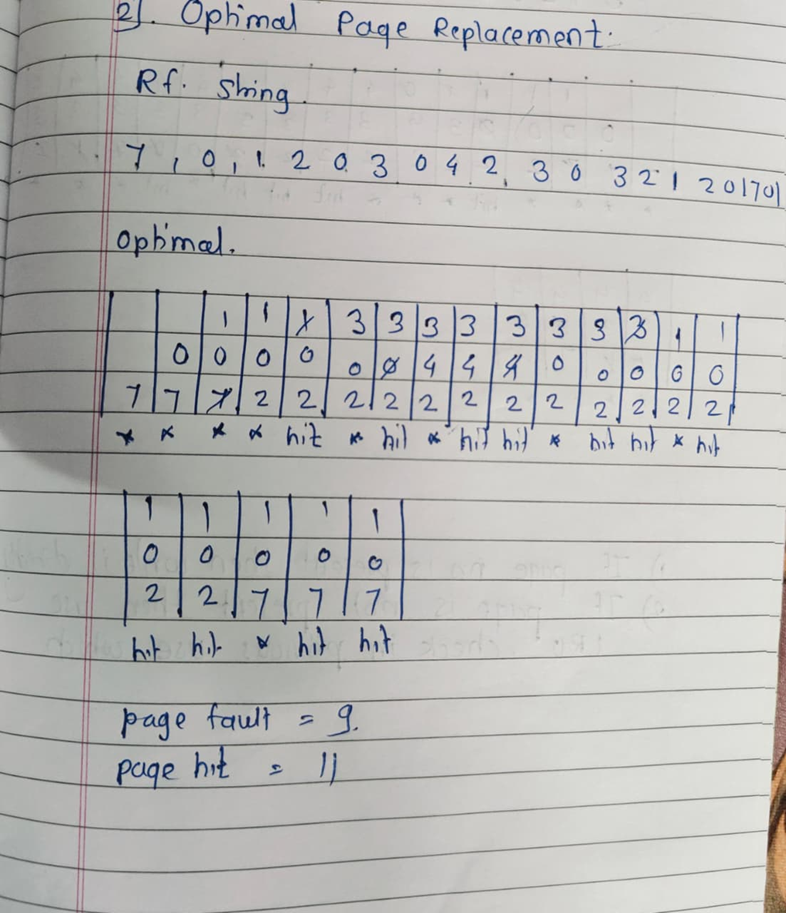 2]. Optimal Page Replacement.
Rf. string.
7, 0, 1. 2 0. 3 0 4. 2. 3 0 3 2 1 2 0 1 7 0 1
optimal.
1 1 1 3 3 3 3 3 3 3 3 1 1
0 0 0 0 0 0 4 4 4 0 0 0 0 0
7 7 7 2 2 2 2 2 2 2 2 2 2 2 2
* * * * hit * hit * hit hit * hit hit * hit
1 1 1 1 1
0 0 0 0 0
2 2 7 7 7
hit hit * hit hit
page fault = 9.
page hit = 11